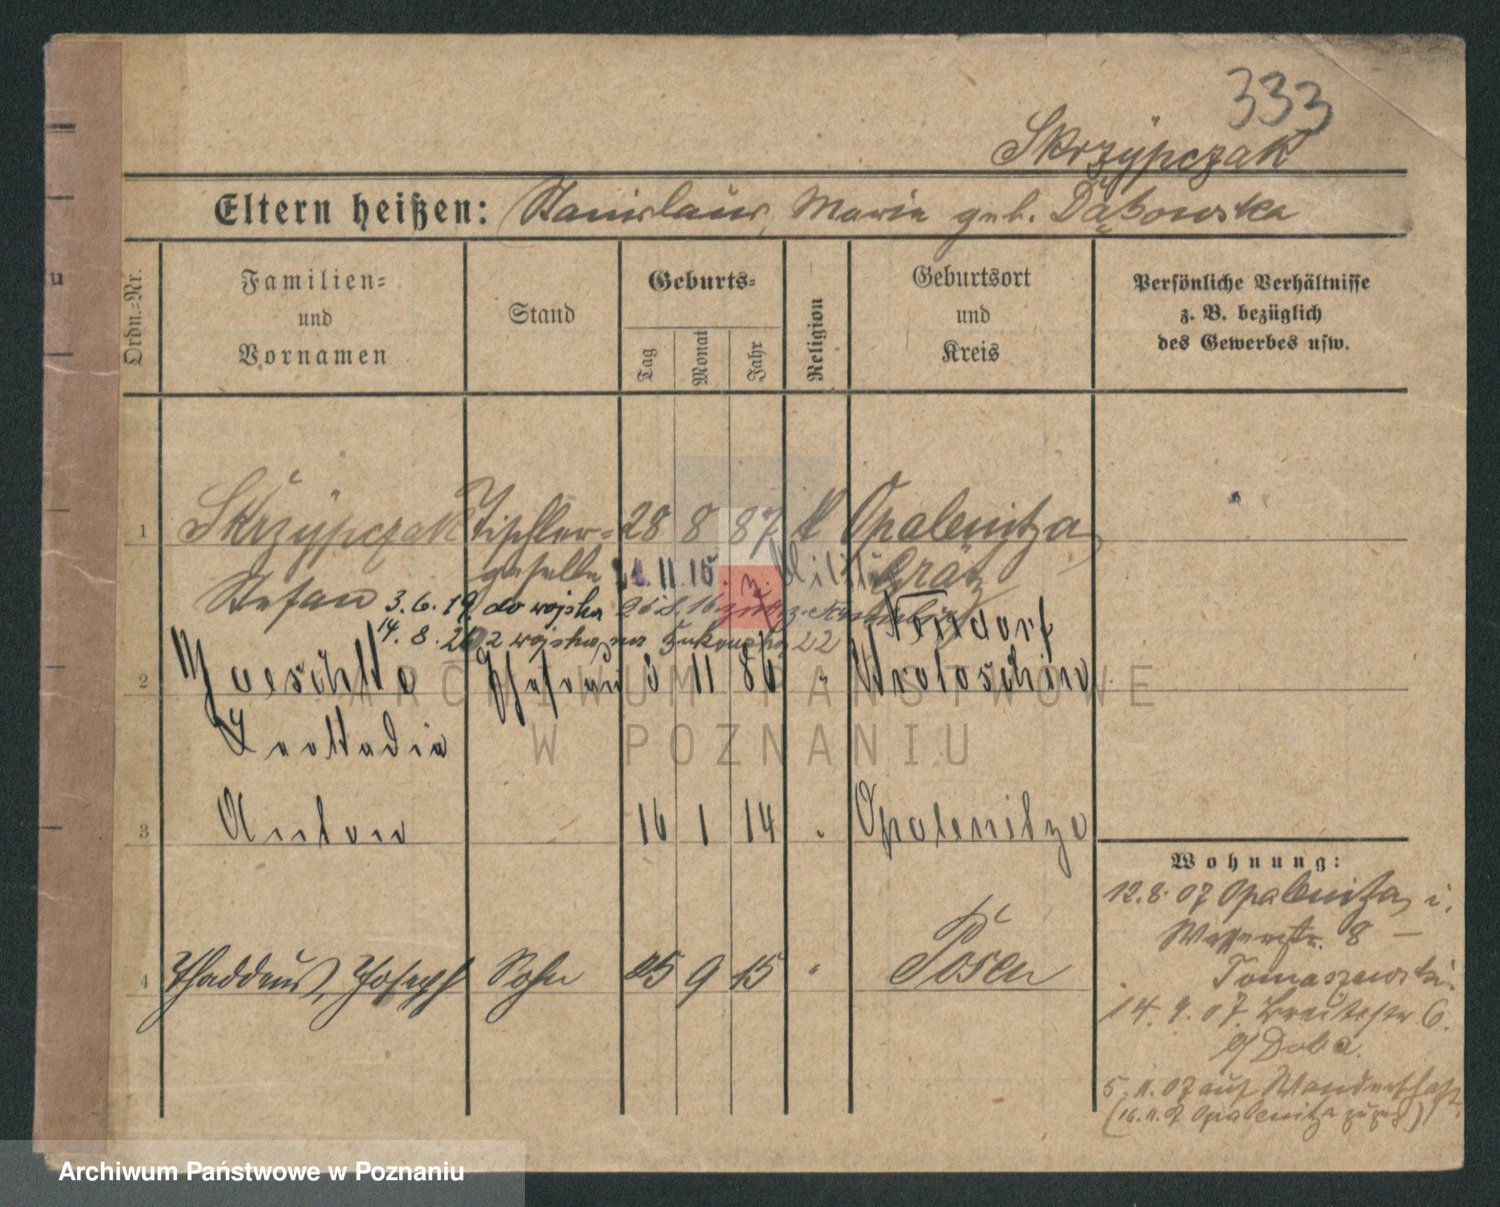 333
Skrzÿpczak
Eltern heißen: Stanislaus, Maria geb. Dąbowska
Ordn.-Nr.
Familien-
und
Vornamen
Stand
Geburts-
Tag
Monat
Jahr
Religion
Geburtsort
und
Kreis
Persönliche Verhältnisse
z. B. bezüglich
des Gewerbes usw.
1 Skrzÿpczak Tischler- 28 8 87 k Opalenitza
geselle 11. 15. z. Grätz
Stefan 3.6.19. do wojska
14. 8. 20 z wojska 22 Neudorf
2 Ehefrau 3 11 86 " Krotoschin
Leokadia
3 Anton 16 1 14 " Opalenitza
4 Thaddeus, Joseph Sohn 25 9 15 " Posen
Wohnung:
12.8.07 Opalenitza i.
Wasserstr. 8 —
Tomaszewski.
14. 9. 07. Breitestr 6.
b/ Doba.
5. 11. 07 auf Wanderschaft
(16.11.07 Opalenitza zuzug)
ARCHIWUM PAŃSTWOWE
W POZNANIU
Archiwum Państwowe w Poznaniu